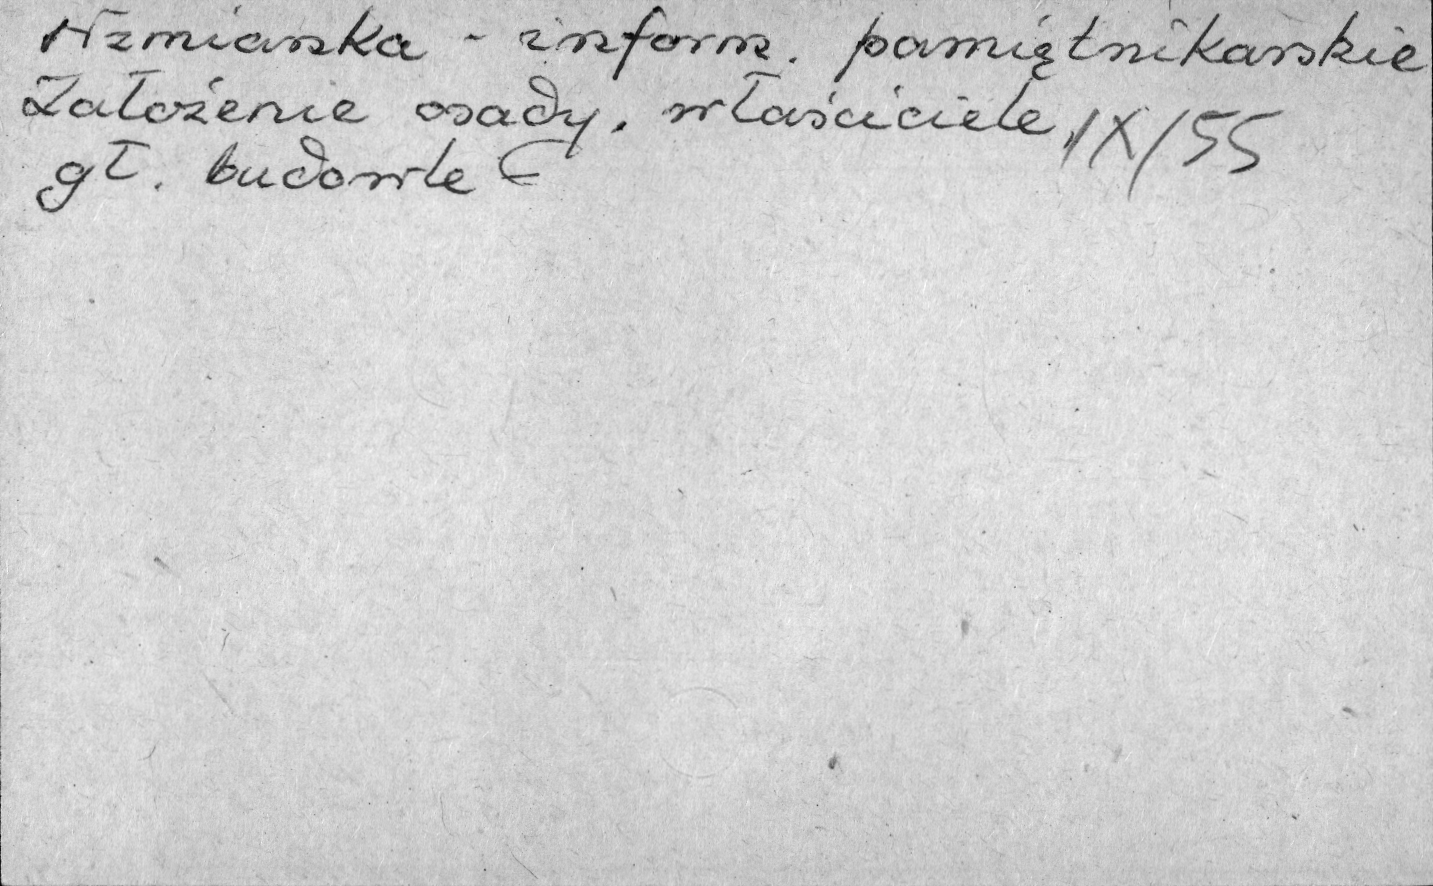 Wzmianka - inform. pamiętnikarskie
Założenie osady, właściciele, IX/55
gł. budowle